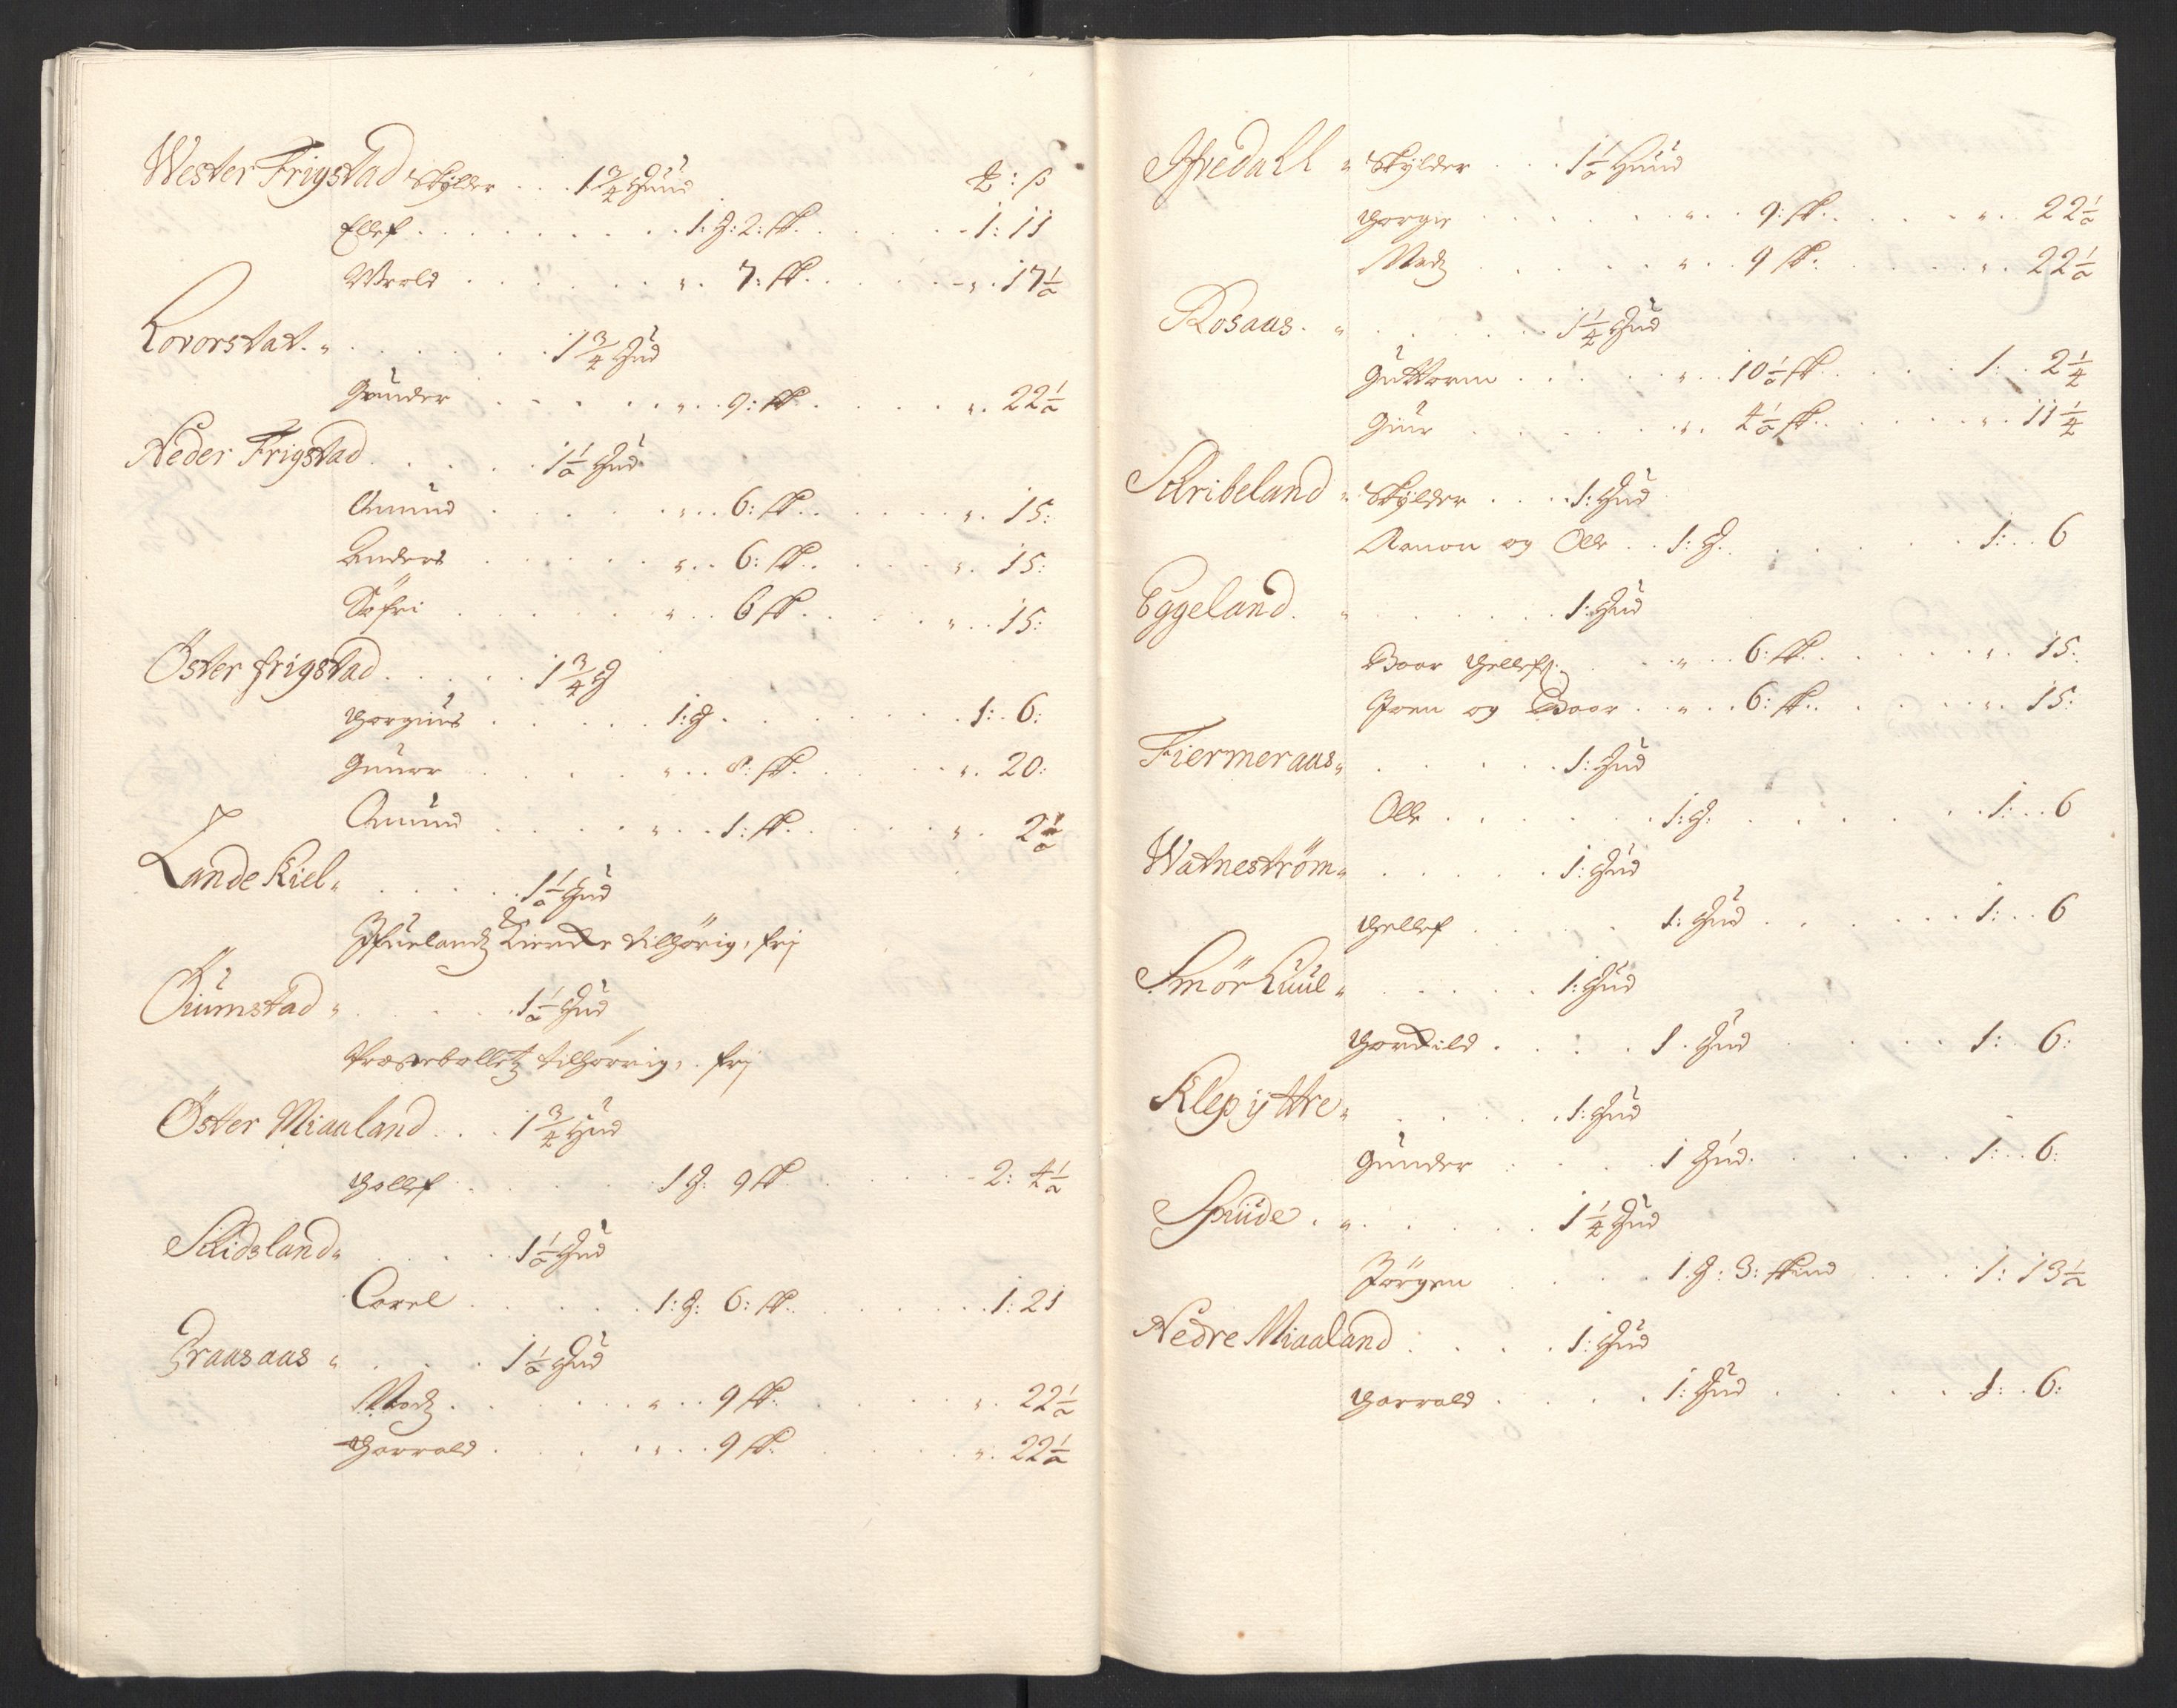 Wester Frigstad Skylder . . . 1 3/4 Huud ℔ : ß
Ellef . . . . . . . . . 1. H: 2: sk. . . . . . . 1: 11
Werold . . . . . . . „ . 7: sk. . . . . . „ . 17 1/2
Lovorstat. „ . . . . . . . 1 3/4 Hud
Gunder . . . . . „ . . 9: sk . . . . . „ . 22 1/2
Neder Frigstad . . . . . . 1 1/2 Hud
Amund . . . . . „ . . 6: sk. . . . . . „ . 15:
Anders . . . . . „ . . 6: sk. . . . . . „ . 15:
Söfri . . . . . . „ . . 6 sk . . . . . „ . . 15:
Öster frigstad . . . . . 1 3/4 H
Torgius . . . . . 1: H . . . . . . . . 1: . 6:
Guurr . . . . . „ . . 8: sk. . . . . . „ . 20:
Amund . . . . . „ . . 1: sk. . . . . . „ . 2 1/2
Lande Kiel „ . . . . . . 1 1/2 Hud
Ifuelandz Kircke tilhörig, frj
Öiumstad „ . . . . . 1 1/2 Hud
Præstebolletz tilhørrig, . frj
Öster Miaaland . . . 1 3/4 Hud
Tollef . . . . . . 1 H: 9 sk . . . . . 2: 4 1/2
Skidsland „ . . . . . 1 1/2 Hud
Carel . . . . . . 1: H: 6: sk. . . . . . . 1: 21
Graasaas „ . . . . 1 1/2 Hud
Madz . . . . . . . „ . . 9 sk. . . . . . „ . 22 1/2
Torrald . . . . . „ . . 9 sk. . . . . . „ . 22 1/2
Ifvedall „ Skylder . . . 1 1/2 Huud
Torgie . . . . . . „ . . 9: sk. . . . . . „ . 22 1/2
Madz . . . . . . „ . . 9 sk: . . . . . „ . 22 1/2
Rosaas. „ . . . . . . 1 1/4 Hud
Guttorm . . . . . „ . . 10 1/2 sk . . . . . 1: . 2 1/4
Giur . . . . . . „ . 4 1/2 sk. . . . . . „ . 11 1/4
Skribeland „ Skylder . . . 1: Hud
Aanon og Olle . . 1: H. . . . . . . 1: . . 6
Eggeland. „ . . . . . . 1: Hud
Boar Tellefs: . . . „ . . 6: sk. . . . . . „ . 15:
Joen og Boar . . „ . . 6: sk. . . . . . „ . 15:
Fiermeraas „ . . . . . 1: Hud
Olle . . . . . . 1: H. . . . . . . 1: . . 6
Watneström „ . . . . . 1: Hud
Tellef . . . . . 1: Hud . . . . . . 1: . . 6
Smör Kuul „ . . . . . 1: Hud
Torkild . . . . . 1. Hud . . . . . 1: . 6:
Klep ÿttre „ . . . . . 1: Hud
Gunder . . . . . 1 Hud . . . . . 1: . . 6:
Spiide . „ . . . . . . 1 1/4 Hud
Jörgen . . . . . 1. H: 3: skind . . . . 1: 13 1/2
Nedre Miaaland . . . . 1: Hud
Torrald . . . . . 1: Hud . . . . . . 1: . 6: